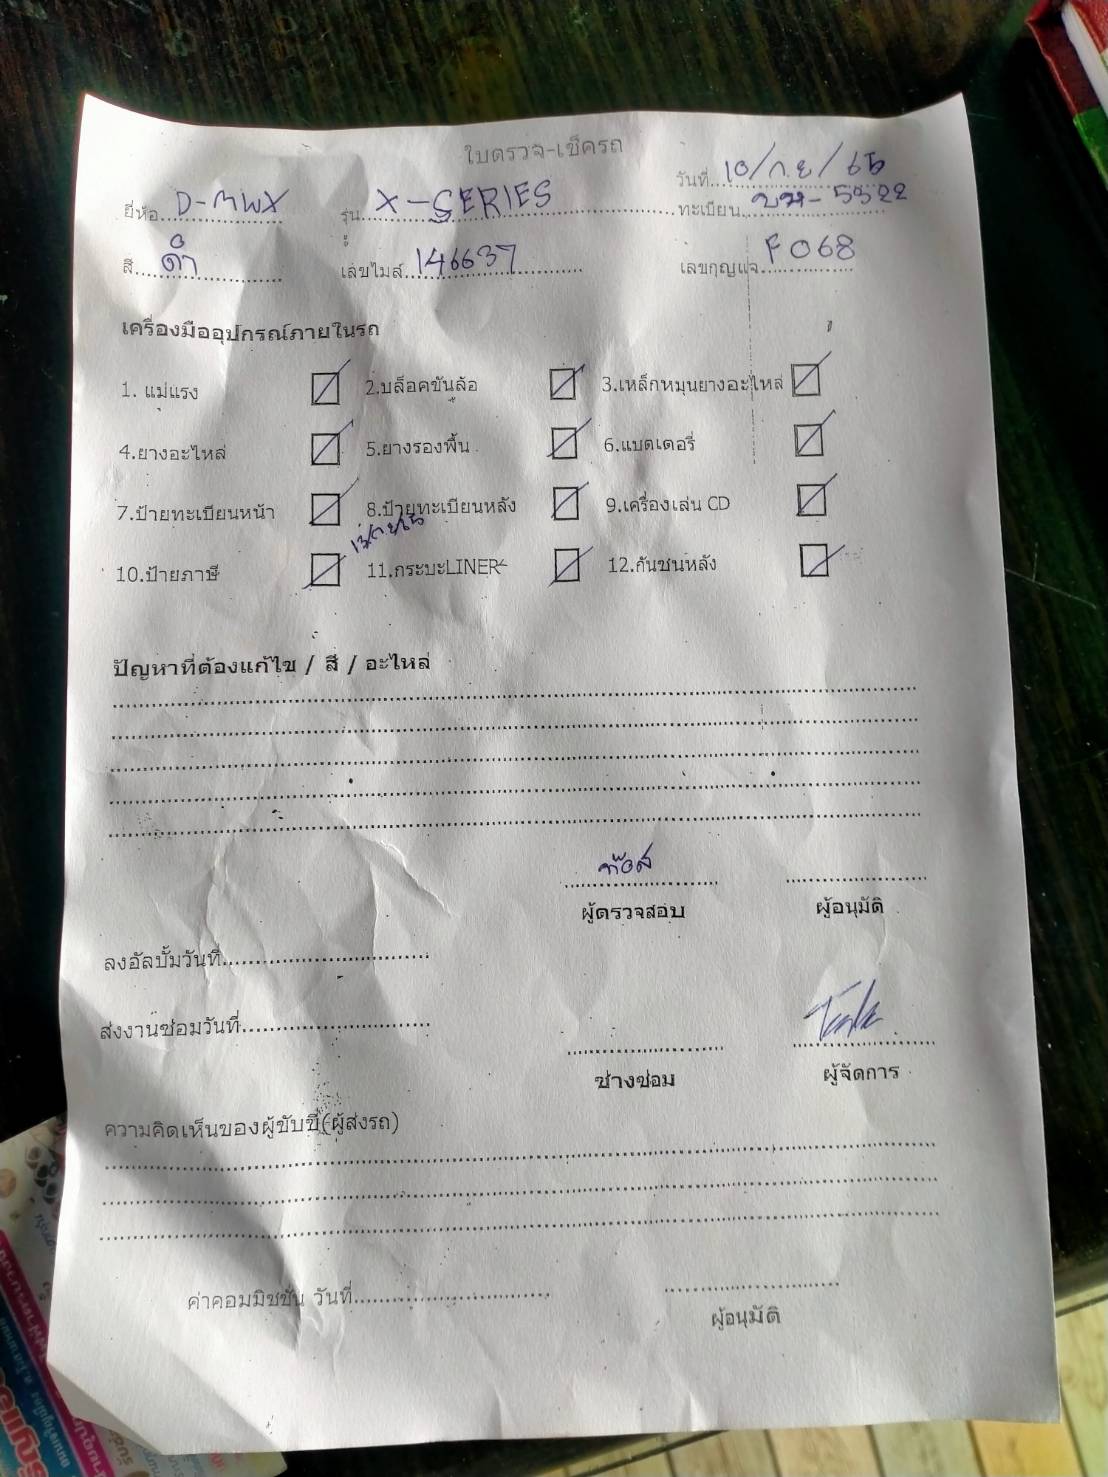 ใบตรวจ-เช็ครถ
วันที่ 10/ก.ย/65
ยี่ห้อ D-MWX รุ่น X-SERIES ทะเบียน บม-5522
สี ดำ เลขไมล์ 146637 เลขกุญแจ F068
เครื่องมืออุปกรณ์ภายในรถ
1. แม่แรง 2.บล็อคขันล้อ 3.เหล็กหมุนยางอะไหล่
4.ยางอะไหล่ 5.ยางรองพื้น 6.แบตเตอรี่
7.ป้ายทะเบียนหน้า 8.ป้ายทะเบียนหลัง 9.เครื่องเล่น CD
10.ป้ายภาษี 11.กระบะLINER 12.กันชนหลัง
ปัญหาที่ต้องแก้ไข / สี / อะไหล่
ผู้ตรวจสอบ ผู้อนุมัติ
ลงอัลบั้มวันที่
ส่งงานซ่อมวันที่
ช่างซ่อม ผู้จัดการ
ความคิดเห็นของผู้ขับขี่(ผู้ส่งรถ)
ค่าคอมมิชชั่น วันที่
ผู้อนุมัติ